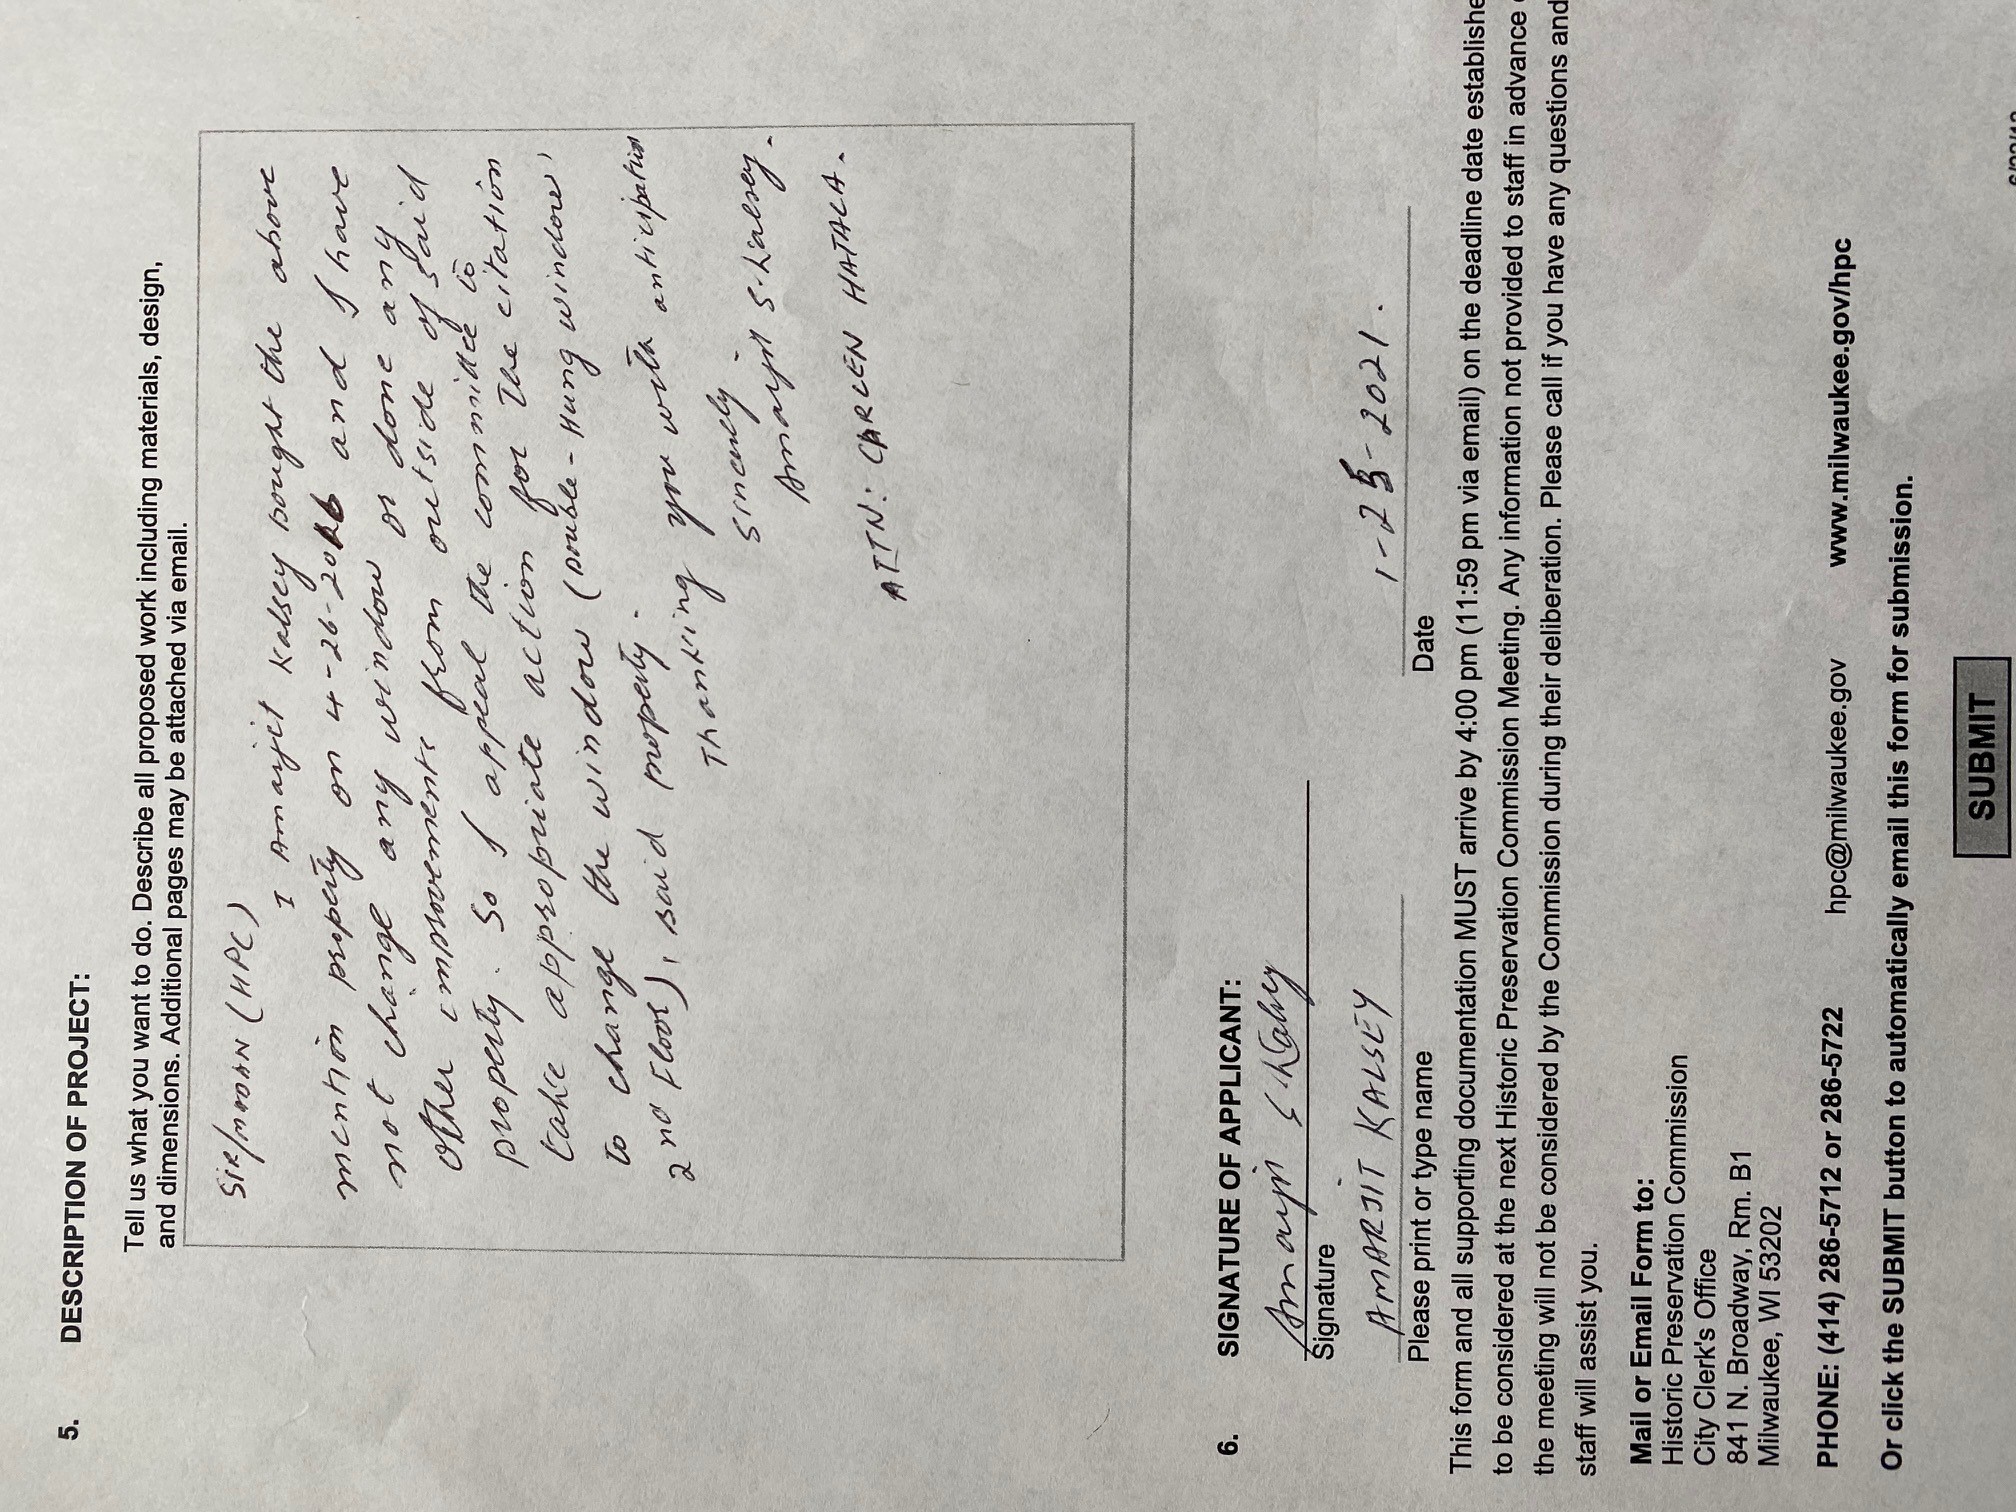 5. DESCRIPTION OF PROJECT:
Tell us what you want to do. Describe all proposed work including materials, design,
and dimensions. Additional pages may be attached via email.
SIR/MADAM (HPC)
I Amarjit Kalsey bought the above
mention property on 4-26-2016 and I have
not change any window or done any
other improvements from outside of said
property. So I appeal the committee to
take appropriate action for the citation
to change the window (Double-Hung window,
2nd Floor), said property.
Thanking you with anticipation
Sincerely
Amarjit S. Kalsey.
ATTN: CARLEN HATALA.
6. SIGNATURE OF APPLICANT:
Amarjit S Kalsey
Signature
AMARJIT KALSEY 1-25-2021.
Please print or type name Date
This form and all supporting documentation MUST arrive by 4:00 pm (11:59 pm via email) on the deadline date establishe
to be considered at the next Historic Preservation Commission Meeting. Any information not provided to staff in advance
the meeting will not be considered by the Commission during their deliberation. Please call if you have any questions and
staff will assist you.
Mail or Email Form to:
Historic Preservation Commission
City Clerk's Office
841 N. Broadway, Rm. B1
Milwaukee, WI 53202
PHONE: (414) 286-5712 or 286-5722 hpc@milwaukee.gov www.milwaukee.gov/hpc
Or click the SUBMIT button to automatically email this form for submission.
SUBMIT